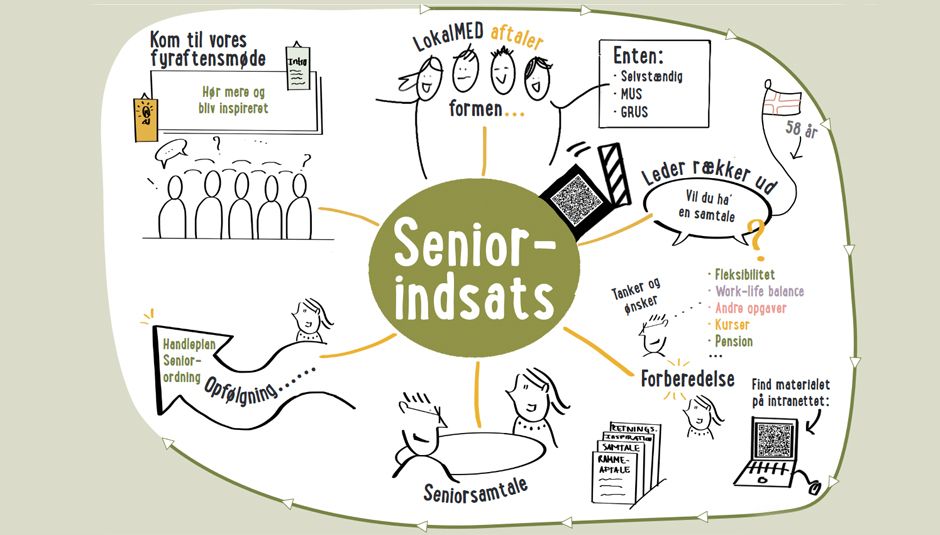 Kom til vores
fyraftensmøde
Intro
Hør mere og
bliv inspireret
LokalMED aftaler
formen...
Enten:
· Selvstændig
· MUS
· GRUS
58 år
Leder rækker ud
Vil du ha'
en samtale
?
Senior-
indsats
Tanker og
ønsker
· Fleksibilitet
· Work-life balance
· Andre opgaver
· Kurser
· Pension
...
Forberedelse
RETNINGS.
INSPIRATION
SAMTALE
RAMME-
AFTALE
Find materialet
på intranettet:
Seniorsamtale
Handleplan
Senior-
ordning
Opfølgning.....